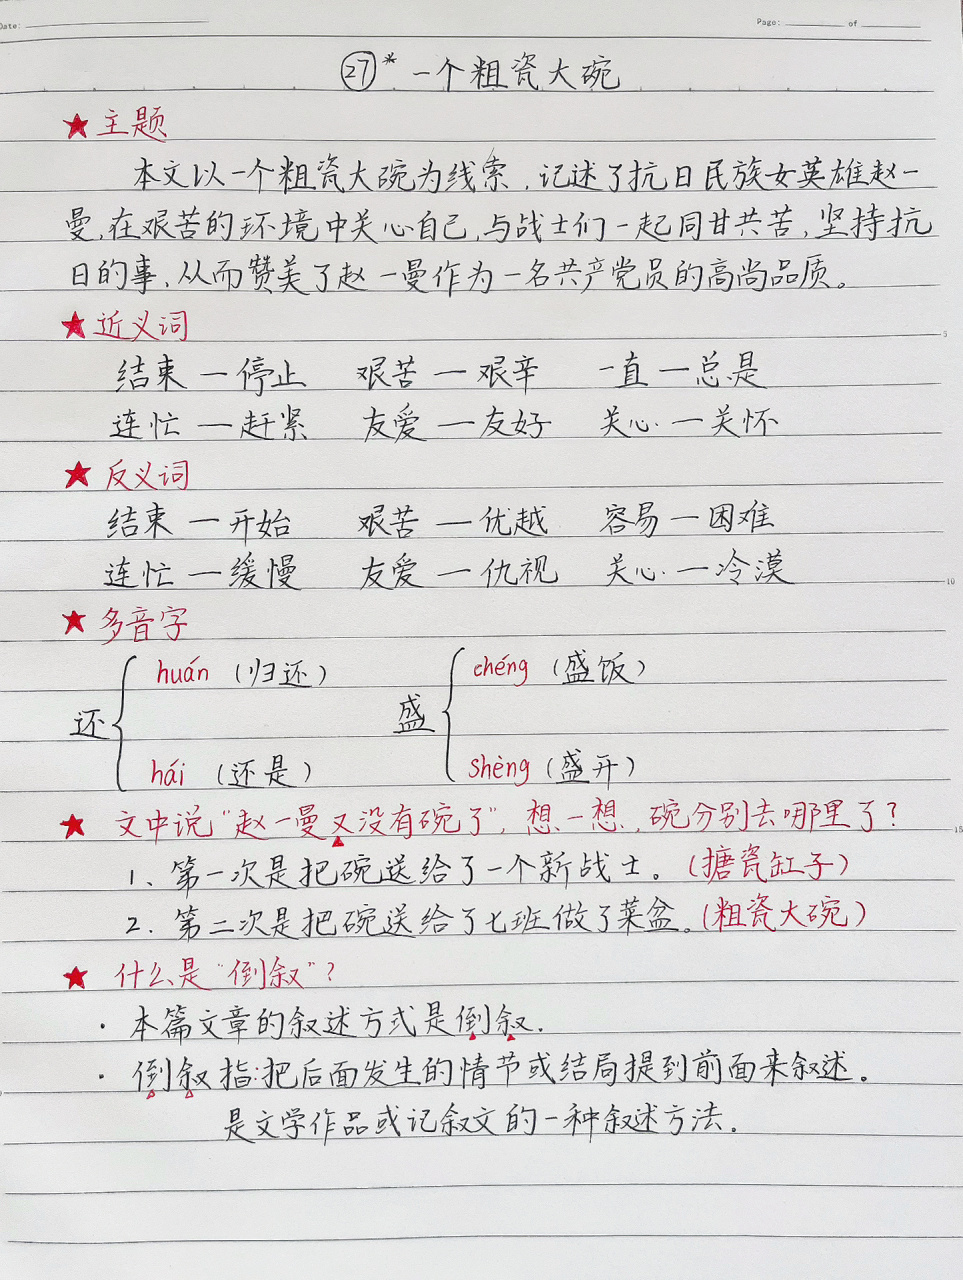 Date:
Page: of
㉗* 一个粗瓷大碗
★ 主题
本文以一个粗瓷大碗为线索,记述了抗日民族女英雄赵一
曼,在艰苦的环境中关心自己,与战士们一起同甘共苦,坚持抗
日的事,从而赞美了赵一曼作为一名共产党员的高尚品质。
★ 近义词
5
结束—停止 艰苦—艰辛 一直—总是
连忙—赶紧 友爱—友好 关心—关怀
★ 反义词
结束—开始 艰苦—优越 容易—困难
连忙—缓慢 友爱—仇视 关心—冷漠
10
★ 多音字
huán (归还) chéng (盛饭)
还 盛
hái (还是) shèng (盛开)
★ 文中说“赵一曼又没有碗了”,想一想,碗分别去哪里了?
15
1、第一次是把碗送给了一个新战士。(搪瓷缸子)
2. 第二次是把碗送给了七班做了菜盆。(粗瓷大碗)
★ 什么是“倒叙”?
· 本篇文章的叙述方式是倒叙.
· 倒叙指:把后面发生的情节或结局提到前面来叙述。
是文学作品或记叙文的一种叙述方法.